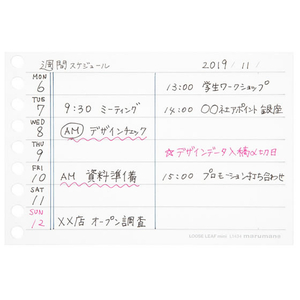 週間スケジュール 2019 / 11 /
MON 6 13:00 学生ワークショップ
TUE 7 9:30 ミーティング 14:00 〇〇ネエアポイント銀座
WED 8 AM デザインチェック
THU 9 ☆デザインデータ入稿〆切日
FRI 10 AM 資料準備 15:00 プロモーション打ち合わせ
SAT 11
SUN 12 ××店 オープン調査
LOOSE LEAF mini maruman